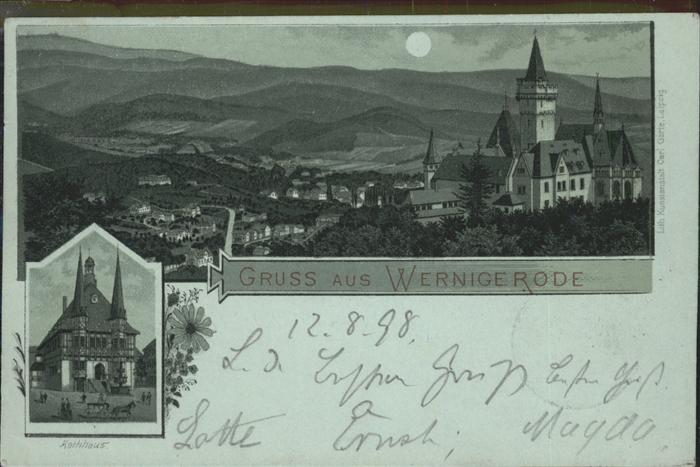 Lith. Kunstanstalt Carl Garte, Leipzig
GRUSS AUS WERNIGERODE
Rathhaus.
12-8-98.
L. d. Gruß
Lotte Ernst, Magda